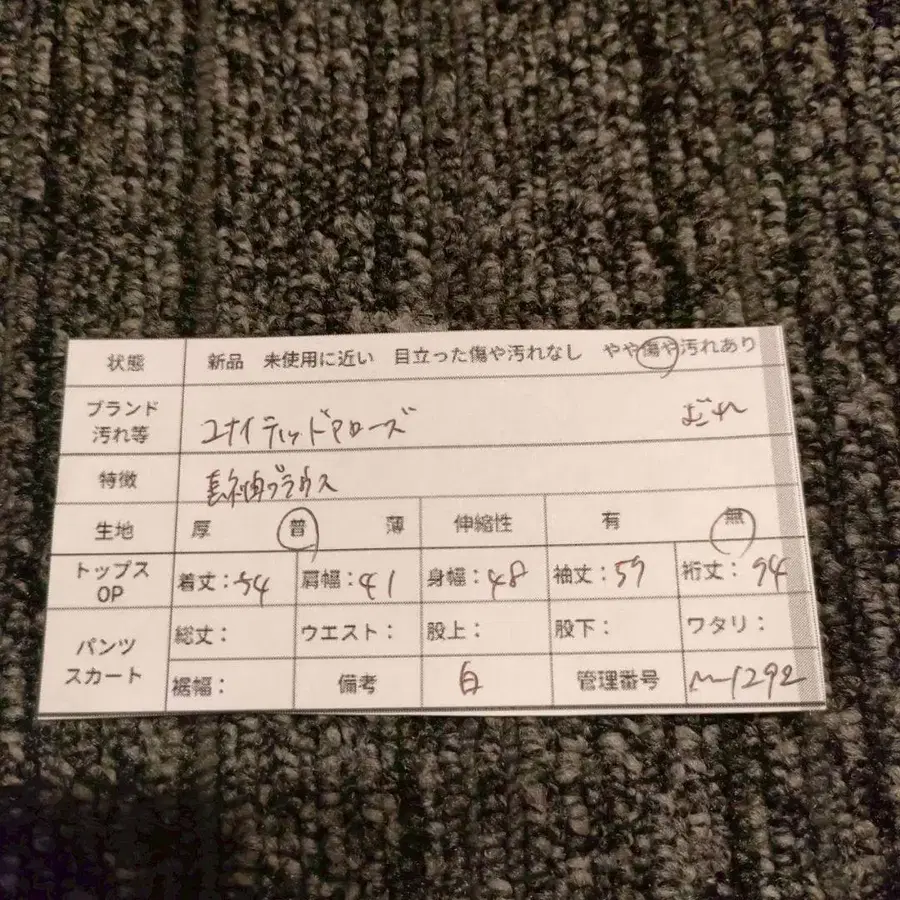 状態 新品 未使用に近い 目立った傷や汚れなし やや傷や汚れあり
ブランド 汚れ等 ユナイテッドアローズ
特徴 長袖ブラウス
生地 厚 普 薄 伸縮性 有 無
トップス OP 着丈：54 肩幅：41 身幅：48 袖丈：57 裄丈：94
パンツ スカート 総丈： ウエスト： 股上： 股下： ワタリ：
裾幅： 備考 白 管理番号 M-1292